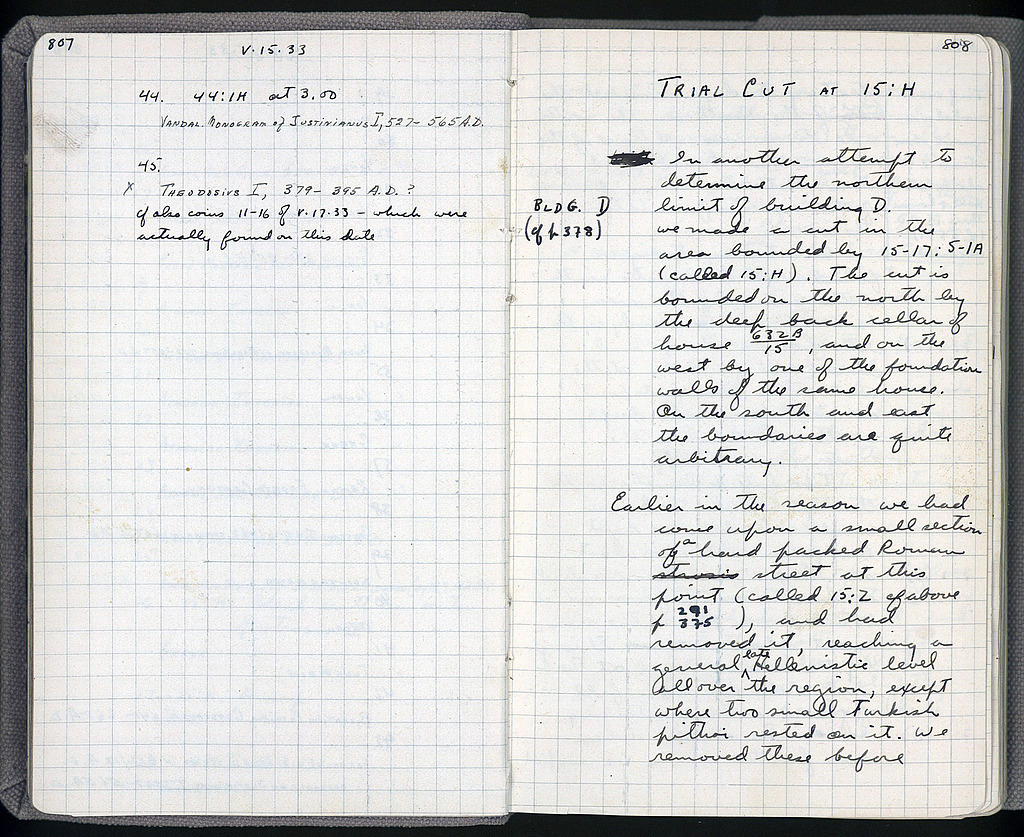 807
V·15·33
44. 44:1H at 3.00
VANDAL. MONOGRAM of JUSTINIANUS I, 527– 565 A.D.
45.
X THEODOSIUS I, 379– 395 A.D. ?
cf also coins 11-16 of V·17·33 – which were
actually found on this date
808
TRIAL CUT AT 15:H
In another attempt to
determine the northern
limit of building D.
BLDG. D
(cf p 378)
we made a cut in the
area bounded by 15-17: 5-1A
(called 15:H). The cut is
bounded on the north by
the deep back cellar of
house 632B/15, and on the
west by one of the foundation
walls of the same house.
On the south and east
the boundaries are quite
arbitrary.
Earlier in the season we had
come upon a small section
of a hard packed Roman
strosis street at this
point (called 15:Z cf above
p 291
375), and had
removed it, reaching a
general late Hellenistic level
all over the region, except
where two small Turkish
pithoi rested on it. We
removed these before